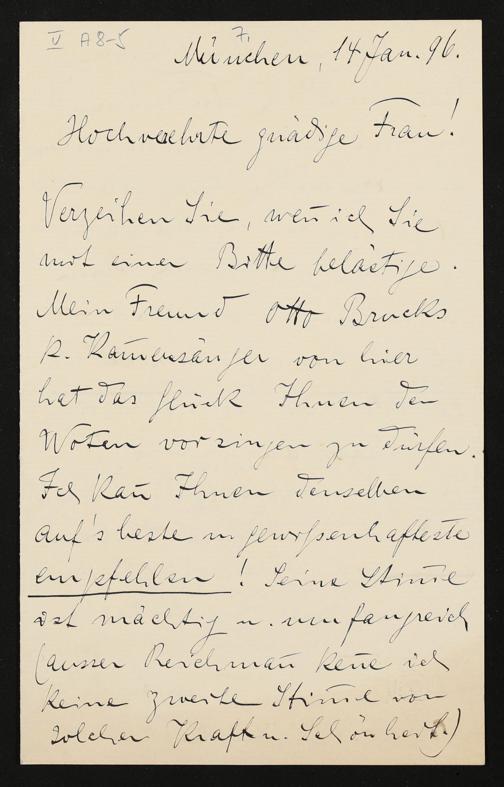 V A8-5
7.
München, 14 Jan. 96.
Hochverehrte gnädige Frau!
Verzeihen Sie, wen̄ ich Sie
mit einer Bitte belästige.
Mein Freund Otto Brucks
k. Kam̄ersänger von hier
hat das Glück Ihnen den
Wotan vorsingen zu dürfen.
Ich kan̄ Ihnen denselben
auf's beste u. gewissenhafteste
empfehlen! Seine Stim̄e
ist mächtig u. umfangreich
(ausser Reichman̄ ken̄e ich
keine zweite Stim̄e von
solcher Kraft u. Schönheit.)